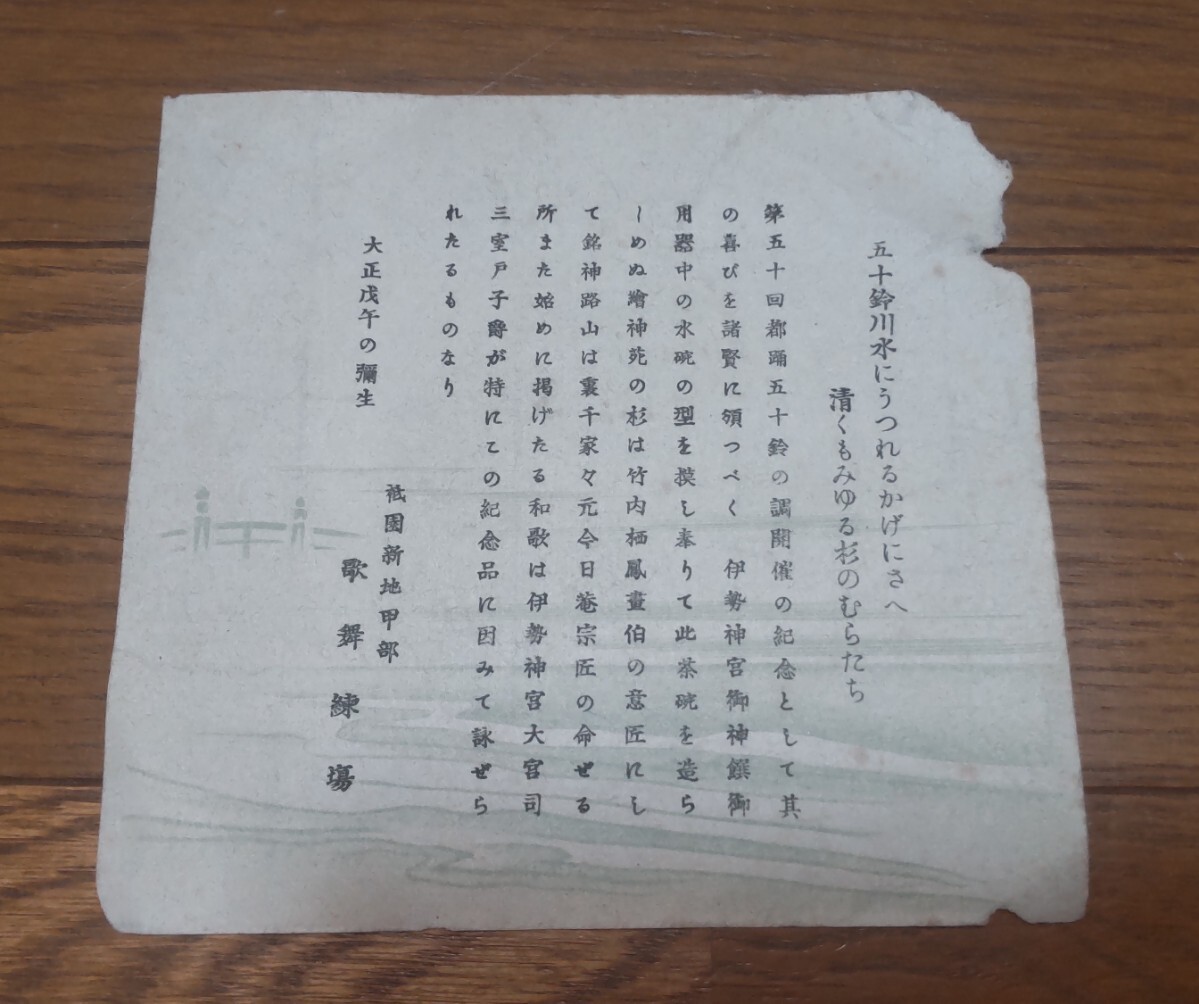 五十鈴川水にうつれるかげにさへ
清くもみゆる杉のむらたち
第五十回都踊五十鈴の調開催の紀念として其
の喜びを諸賢に頒つべく　伊勢神宮御神饌御
用器中の水碗の型を摸し奉りて此茶碗を造ら
しめぬ繪神苑の杉は竹内栖鳳畫伯の意匠にし
て銘神路山は裏千家々元今日菴宗匠の命ぜる
所また始めに掲げたる和歌は伊勢神宮大宮司
三室戸子爵が特にこの紀念品に因みて詠ぜら
れたるものなり
大正戊午の彌生
祗園新地甲部
歌舞練塲